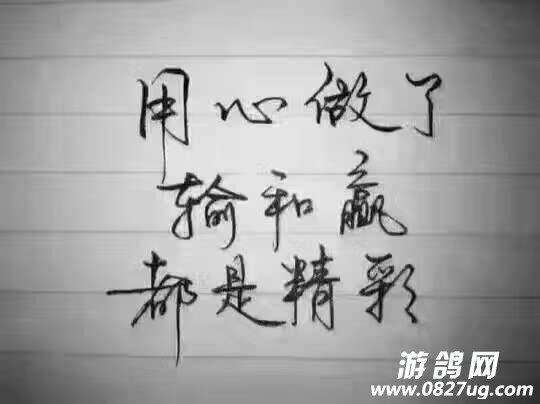 用心做了
输和赢
都是精彩
游鸽网
www.0827ug.com